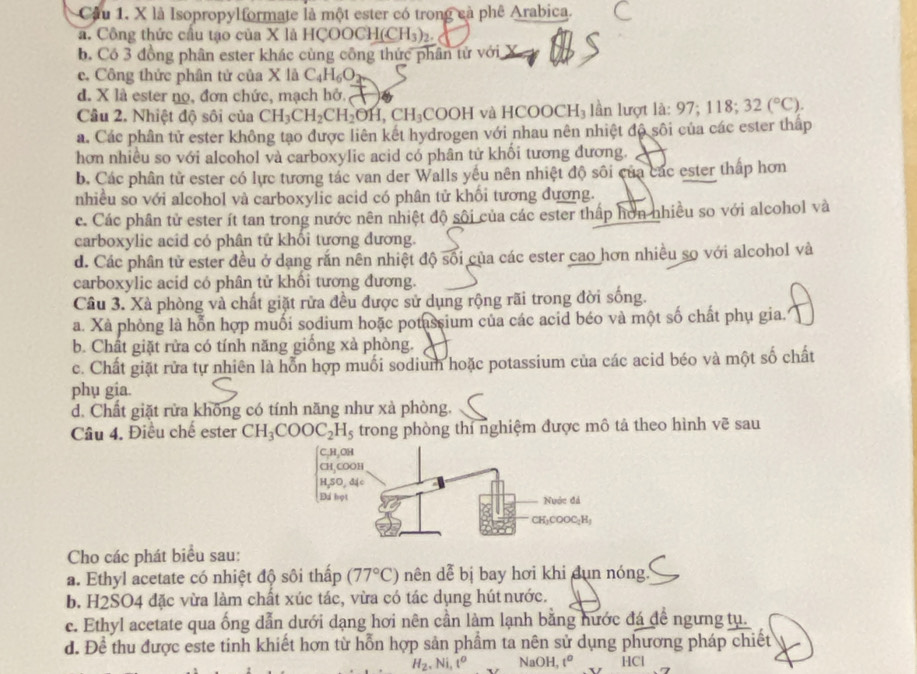 Câu 1. X là Isopropylformate là một ester có trong cà phê Arabica. C
a. Công thức cấu tạo của X là HCOOCH(CH₃)₂. Đ
b. Có 3 đồng phân ester khác cùng công thức phân tử với X. S
c. Công thức phân tử của X là C₄H₆O₂. S
d. X là ester no, đơn chức, mạch hở. Đ
Câu 2. Nhiệt độ sôi của CH₃CH₂CH₂OH, CH₃COOH và HCOOCH₃ lần lượt là: 97; 118; 32 (°C).
a. Các phân tử ester không tạo được liên kết hydrogen với nhau nên nhiệt độ sôi của các ester thấp
hơn nhiều so với alcohol và carboxylic acid có phân tử khối tương đương. Đ
b. Các phân tử ester có lực tương tác van der Walls yếu nên nhiệt độ sôi của các ester thấp hơn
nhiều so với alcohol và carboxylic acid có phân tử khối tương đương.
c. Các phân tử ester ít tan trong nước nên nhiệt độ sôi của các ester thấp hơn nhiều so với alcohol và
carboxylic acid có phân tử khối tương đương. S
d. Các phân tử ester đều ở dạng rắn nên nhiệt độ sôi của các ester cao hơn nhiều so với alcohol và
carboxylic acid có phân tử khối tương đương. S
Câu 3. Xà phòng và chất giặt rửa đều được sử dụng rộng rãi trong đời sống.
a. Xà phòng là hỗn hợp muối sodium hoặc potassium của các acid béo và một số chất phụ gia. Đ
b. Chất giặt rửa có tính năng giống xà phòng. Đ
c. Chất giặt rửa tự nhiên là hỗn hợp muối sodium hoặc potassium của các acid béo và một số chất
phụ gia. S
d. Chất giặt rửa không có tính năng như xà phòng. S
Câu 4. Điều chế ester CH₃COOC₂H₅ trong phòng thí nghiệm được mô tả theo hình vẽ sau
C₂H₅OH
CH₃COOH
H₂SO₄ đặc
Đá bọt
Nước đá
CH₃COOC₂H₅
Cho các phát biểu sau:
a. Ethyl acetate có nhiệt độ sôi thấp (77°C) nên dễ bị bay hơi khi đun nóng. S
b. H2SO4 đặc vừa làm chất xúc tác, vừa có tác dụng hút nước. Đ
c. Ethyl acetate qua ống dẫn dưới dạng hơi nên cần làm lạnh bằng nước đá để ngưng tụ.
d. Để thu được este tinh khiết hơn từ hỗn hợp sản phẩm ta nên sử dụng phương pháp chiết Đ
H₂, Ni, t° NaOH, t° HCl